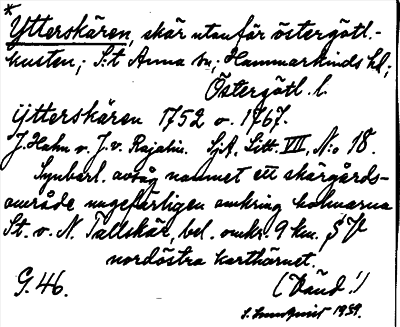 *
Ytterskären, skär utanför östergötl.-
kusten; S:t Anna sn; Hammarkinds hd;
Östergötl. l.
Ytterskären 1752 o. 1767.
J. Hahn o. J. v. Rajalin. SjA. Litt. VII, N:o 18.
Synbarl. avsåg namnet ett skärgårds-
område ungefärligen omkring holmarna
St. o. N. Tallskär, bel. omkr. 9 km.
nordöstra karthörnet.
G. 46. (Vänd!)
S. Lundquist 1939.